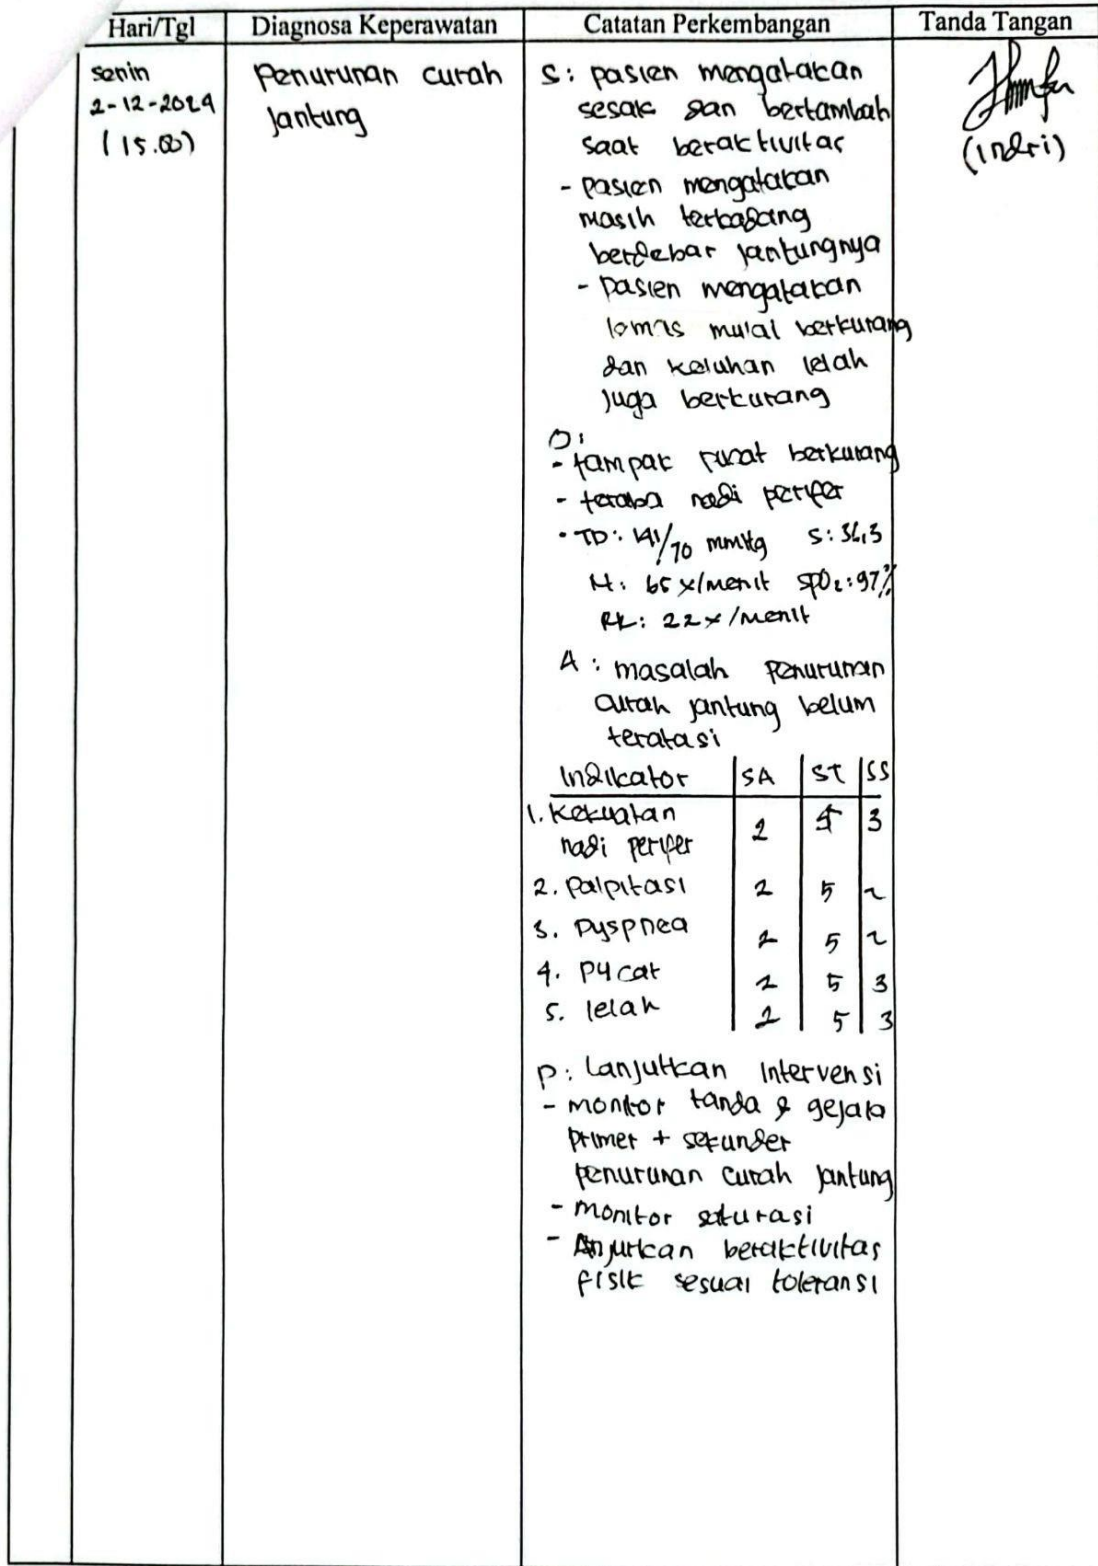 Hari/Tgl Diagnosa Keperawatan Catatan Perkembangan Tanda Tangan
Senin
2-12-2024
(15.00)
Penurunan curah
Jantung
S: pasien mengatakan
sesak dan bertambah
saat beraktivitas
- pasien mengatakan
masih terkadang
berdebar jantungnya
- pasien mengatakan
lemas mulai berkurang
dan keluhan lelah
juga berkurang
O:
- tampak pucat berkurang
- teraba nadi perifer
- TD: 141/70 mmHg S: 36,3
N: 65 x/menit SPO2: 97%
RR: 22x/menit
A: masalah penurunan
curah jantung belum
teratasi
Indikator SA ST SS
1. Kekuatan
nadi perifer 2 5 3
2. Palpitasi 2 5 2
3. Dyspnea 2 5 2
4. Pucat 2 5 3
5. lelah 2 5 3
P: Lanjutkan intervensi
- monitor tanda & gejala
primer + sekunder
penurunan curah jantung
- monitor saturasi
- Anjurkan beraktivitas
fisik sesuai toleransi
(Indri)